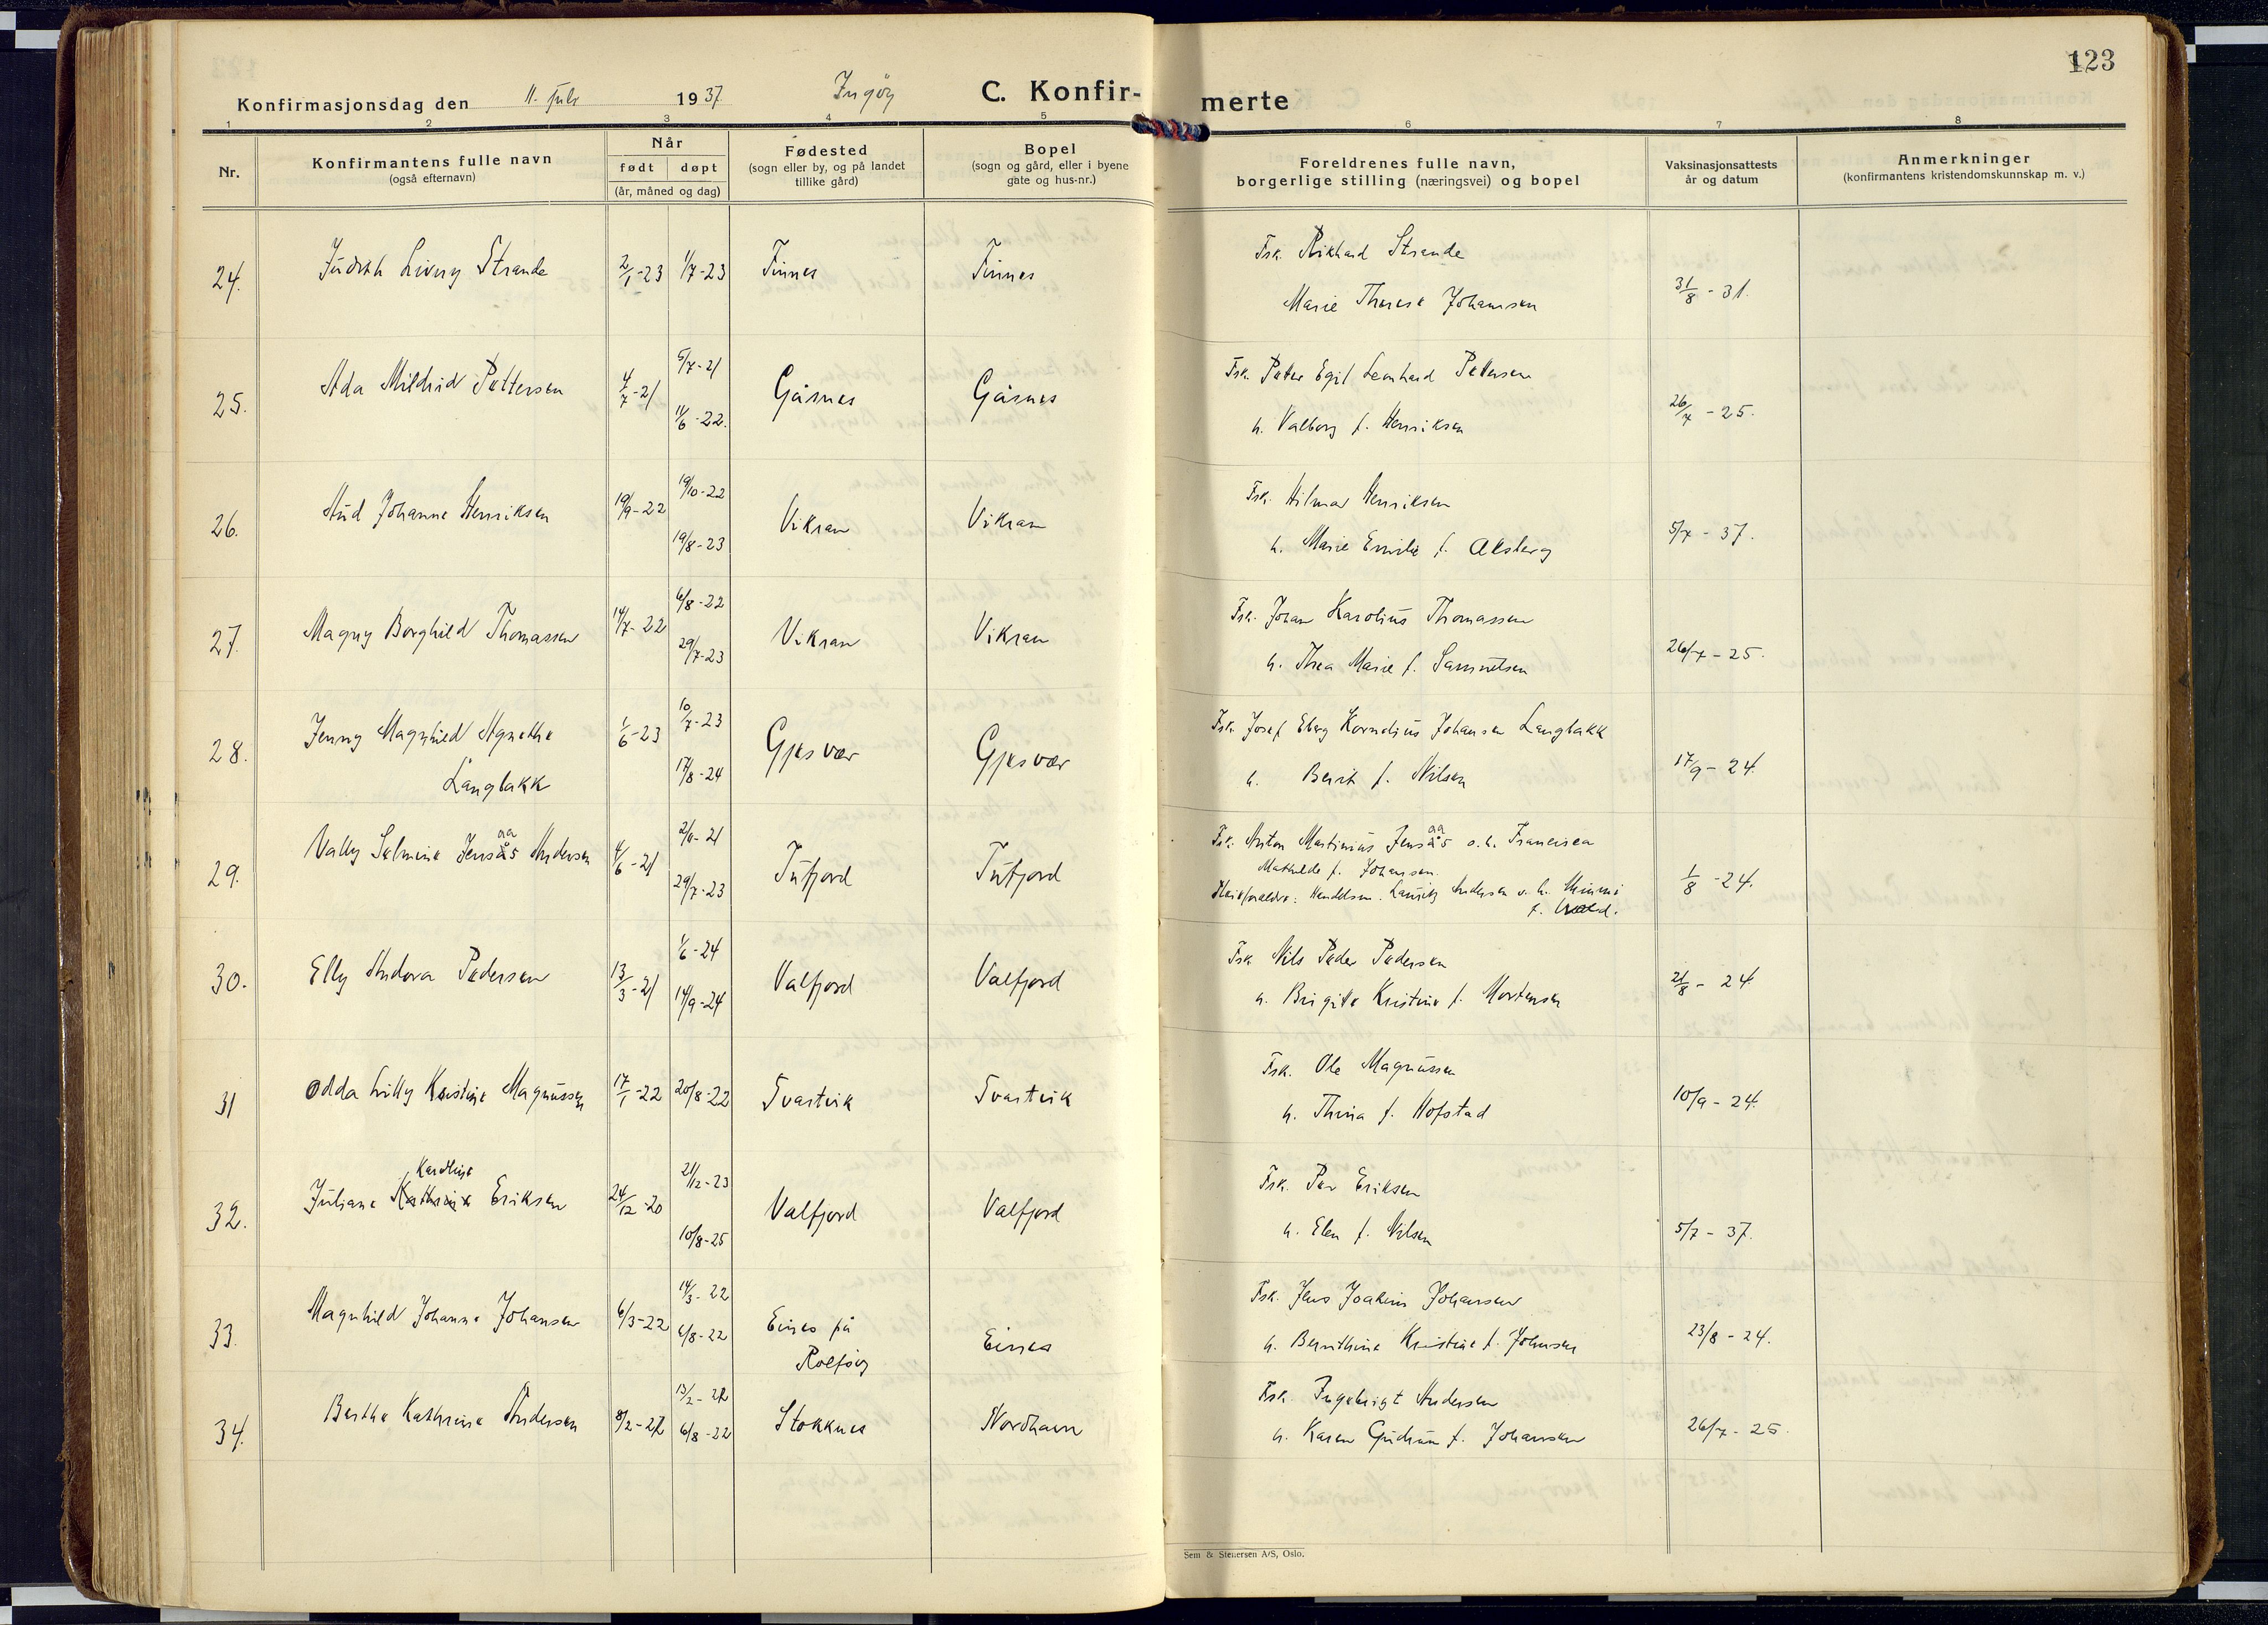 123
Konfirmasjonsdag den 11. juli 1937 Ingöy C. Konfirmerte
1 2 3 4 5 6 7 8
Nr. Konfirmantens fulle navn (også efternavn) Når født døpt (år, måned og dag) Fødested (sogn eller by, og på landet tillike gård) Bopel (sogn og gård, eller i byene gate og hus-nr.) Foreldrenes fulle navn, borgerlige stilling (næringsvei) og bopel Vaksinasjonsattests år og datum Anmerkninger (konfirmantens kristendomskunnskap m. v.)
24. Judith Livny Strande 2/1-23 1/7-23 Finnes Finnes Fsk. Rikhard Strande
Marie Therese Johansen 31/8 - 31.
25. Ada Mildrid Pettersen 4/7-21 5/7-21 11/6-22. Gåsnes Gåsnes Fsk. Peter Egil Leonhard Pettersen
h. Valborg f. Henriksen 26/7 - 25.
26. Aud Johanne Henriksen 19/9-22 19/10-22 19/8-23 Vikran Vikran Fsk. Hilmar Henriksen
h. Marie Emilie f. Aksberg 5/7 - 37.
27. Magny Borghild Thomassen 14/7-22 6/8-22 29/7-23 Vikran Vikran Fsk. Johan Karolius Thomassen
h. Thea Marie f. Samuelsen 26/7 - 25.
28. Jenny Magnhild Agnethe
Langbakk 1/6-23 10/7-23 17/8-24 Gjesvær Gjesvær Fsk. Josef Eberg Kornelius Johansen Langbakk
h. Berit f. Nilsen 17/9 - 24.
29. Vally Salmine Jensås Andersen 4/6-21 29/7-23 Tufjord Tufjord Fsk. Anton Martinius Jensås o. h. Francisca
Mathilde f. Johansen.
Handelsm. Lauritz Andersen o. h. Minmi
1/8 - 24.
30. Elly Andora Pedersen 13/3-21 1/6-24 14/9-24 Valfjord Valfjord Fsk. Nils Peder Pedersen
h. Brigitte Kristine f. Mortensen 21/8 - 24
31 Odda Lilly Kristine Magnussen 17/1-22 20/8-22 Tvartvik Tvartvik Fsk. Ole Magnussen
h. Thina f. Hofstad 10/9 - 24.
Karoline
32. Juliane Kathrine Eriksen 24/12-20 21/12-23 10/8-25 Valfjord Valfjord Fsk. Per Eriksen
h. Elen f. Nilsen 5/7 - 37.
33. Magnhild Johanne Johansen 6/3-22 14/3-22 6/8-22 Eines på
Rolfsöy Eines Fsk. Jens Joakim Johansen
h. Bernthine Kristine f. Johnsen 23/8 - 24.
34. Berthe Kathrine Andersen 8/2-22 13/2-22 6/8-22 Stokknes Nordhavn Fsk. Ingebrigt Andersen
h. Karen Gudrun f. Johansen 26/7 - 25.
Sem & Stenersen A/S, Oslo.